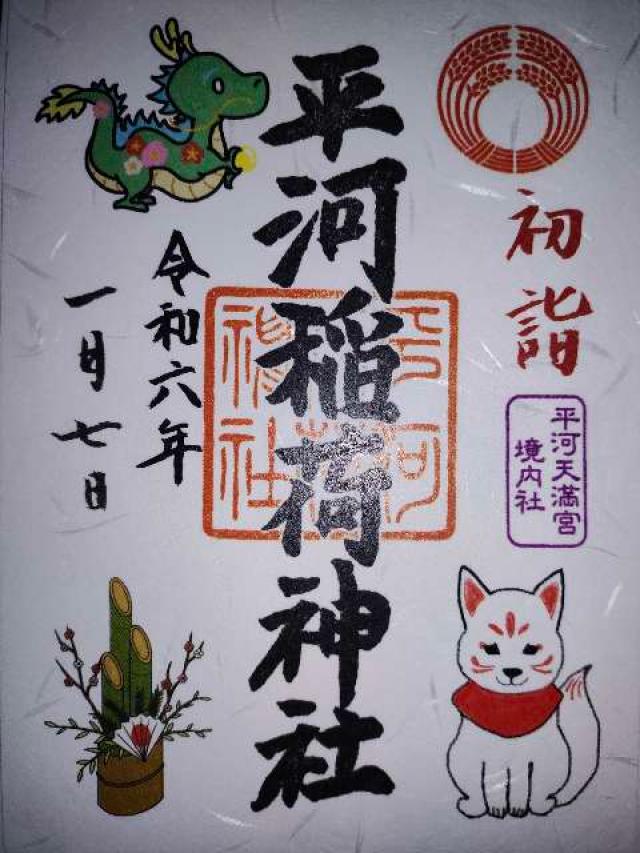 初詣
平河天満宮
境内社
平河稲荷神社
令和六年
一月七日